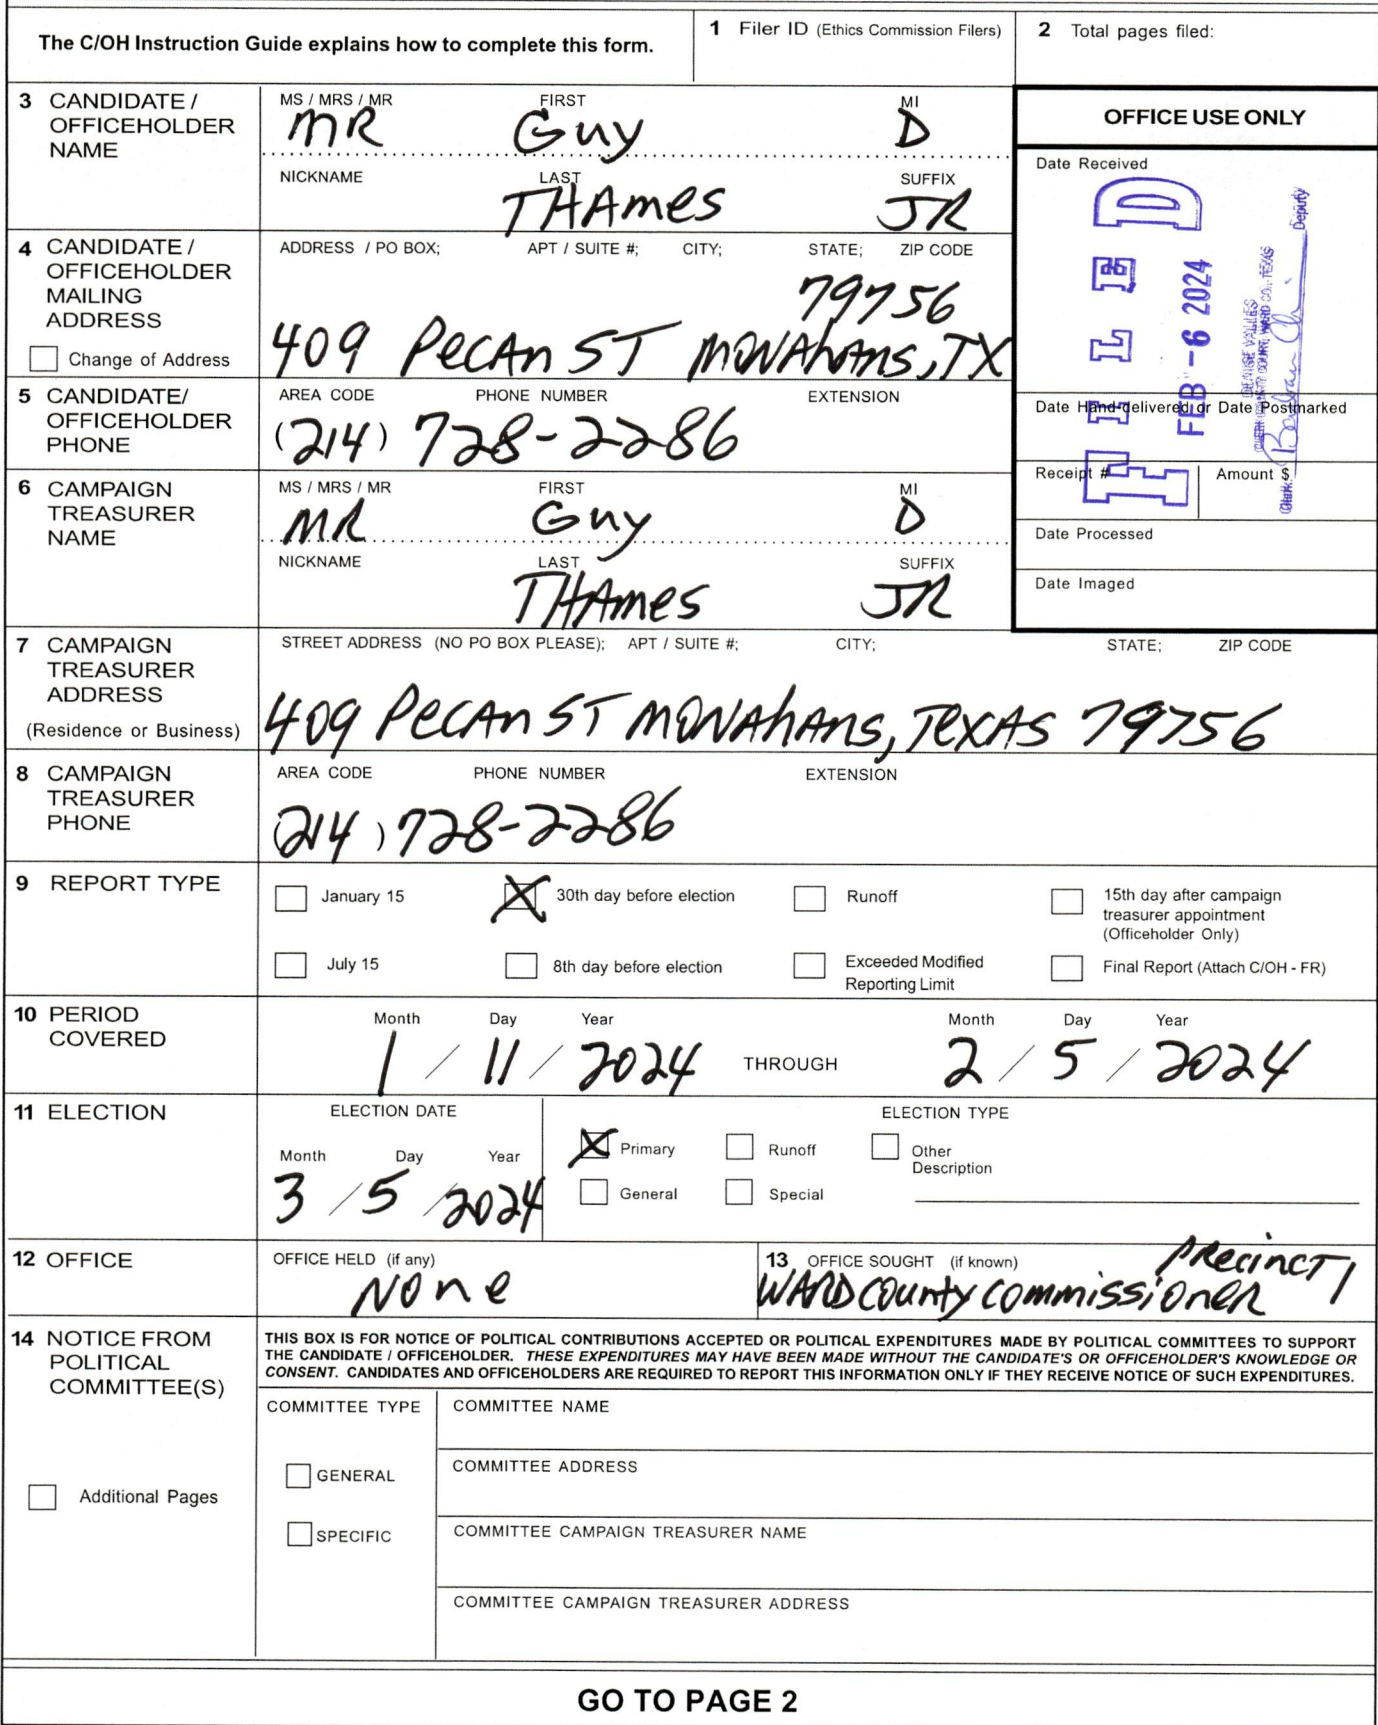 The C/OH Instruction Guide explains how to complete this form.
1 Filer ID (Ethics Commission Filers)
2 Total pages filed:
3 CANDIDATE / OFFICEHOLDER NAME
MS / MRS / MR FIRST MI
MR Guy D
NICKNAME LAST SUFFIX
THAmes JR
OFFICE USE ONLY
Date Received
FILED
FEB - 6 2024
DENISE VALLES
Deputy
Date Hand-delivered or Date Postmarked
Receipt # Amount $
Date Processed
Date Imaged
4 CANDIDATE / OFFICEHOLDER MAILING ADDRESS
Change of Address
ADDRESS / PO BOX; APT / SUITE #; CITY; STATE; ZIP CODE
79756
409 PecAn ST MONAhANS, TX
5 CANDIDATE/ OFFICEHOLDER PHONE
AREA CODE PHONE NUMBER EXTENSION
(214) 728-2286
6 CAMPAIGN TREASURER NAME
MS / MRS / MR FIRST MI
MR Guy D
NICKNAME LAST SUFFIX
THAmes JR
7 CAMPAIGN TREASURER ADDRESS
(Residence or Business)
STREET ADDRESS (NO PO BOX PLEASE); APT / SUITE #; CITY; STATE; ZIP CODE
409 PecAn ST MONAhANS, TEXAS 79756
8 CAMPAIGN TREASURER PHONE
AREA CODE PHONE NUMBER EXTENSION
(214) 728-2286
9 REPORT TYPE
January 15 30th day before election Runoff 15th day after campaign treasurer appointment (Officeholder Only)
July 15 8th day before election Exceeded Modified Reporting Limit Final Report (Attach C/OH - FR)
10 PERIOD COVERED
Month Day Year Month Day Year
1 / 11 / 2024 THROUGH 2 / 5 / 2024
11 ELECTION
ELECTION DATE ELECTION TYPE
Month Day Year
3 / 5 / 2024
Primary Runoff Other Description
General Special
12 OFFICE
OFFICE HELD (if any)
None
13 OFFICE SOUGHT (if known)
PRecincT 1
WARD County Commissioner
14 NOTICE FROM POLITICAL COMMITTEE(S)
THIS BOX IS FOR NOTICE OF POLITICAL CONTRIBUTIONS ACCEPTED OR POLITICAL EXPENDITURES MADE BY POLITICAL COMMITTEES TO SUPPORT
THE CANDIDATE / OFFICEHOLDER. THESE EXPENDITURES MAY HAVE BEEN MADE WITHOUT THE CANDIDATE'S OR OFFICEHOLDER'S KNOWLEDGE OR
CONSENT. CANDIDATES AND OFFICEHOLDERS ARE REQUIRED TO REPORT THIS INFORMATION ONLY IF THEY RECEIVE NOTICE OF SUCH EXPENDITURES.
Additional Pages
COMMITTEE TYPE
GENERAL
SPECIFIC
COMMITTEE NAME
COMMITTEE ADDRESS
COMMITTEE CAMPAIGN TREASURER NAME
COMMITTEE CAMPAIGN TREASURER ADDRESS
GO TO PAGE 2